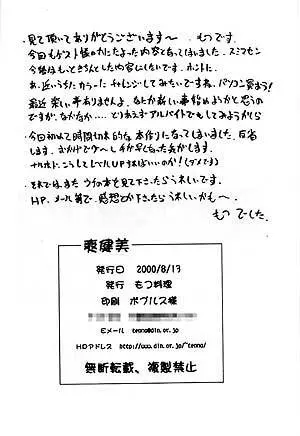 ・見て頂いてありがとうございます〜 もつです。
今回もゲスト様のかになった内容となってしまいました。スミマセン
今後はもっときちんとした内容にしたいです。ホントに。
あ、近いうちにカラーにチャレンジしてみたいですね。パソコン買おう!
最近 楽しい事ありませんよ。なにか新しい事始めようかと思うの
ですが、なかなか‥‥とりあえずアルバイトでもしてみようかしら
・今回初めて時間切れ的な本作りになってしまいました。反省
します。おかげで少〜し手が早くなった気がします。
ナルホド、こうしてレベルUPすればいいのか!(ダメです)
・それではまたウチの本を見て下さったらうれしいです。
HP、メール等で感想とか下さったらうれしいかも〜。
もつでした。
発行日 2000/8/13
発行 もつ料理
印刷 ポプルス様
Eメール
HDアドレス
無断転載、複製禁止